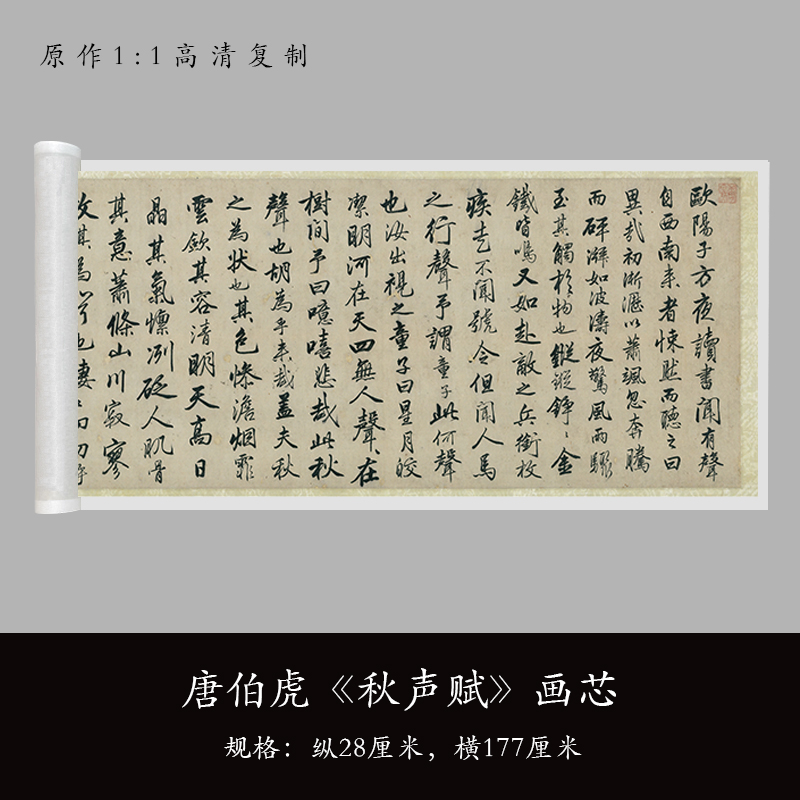 原作1:1高清复制
歐陽子方夜讀書聞有聲
自西南来者悚然而聽之曰
異哉初淅瀝以蕭颯忽奔騰
而砰湃如波濤夜驚風雨驟
至其觸於物也鏦鏦錚〻金
鐵皆鳴又如赴敵之兵銜枚
疾走不聞號令但聞人馬
之行聲予謂童子此何聲
也汝出視之童子曰星月皎
潔明河在天四無人聲〻在
樹間予曰噫嘻悲哉此秋
聲也胡為乎来哉盖夫秋
之為状也其色惨澹烟霏
雲歛其容清明天高日
晶其氣慄冽砭人肌骨
其意蕭條山川寂寥
故其為聲也凄
唐伯虎《秋声赋》画芯
规格：纵28厘米，横177厘米